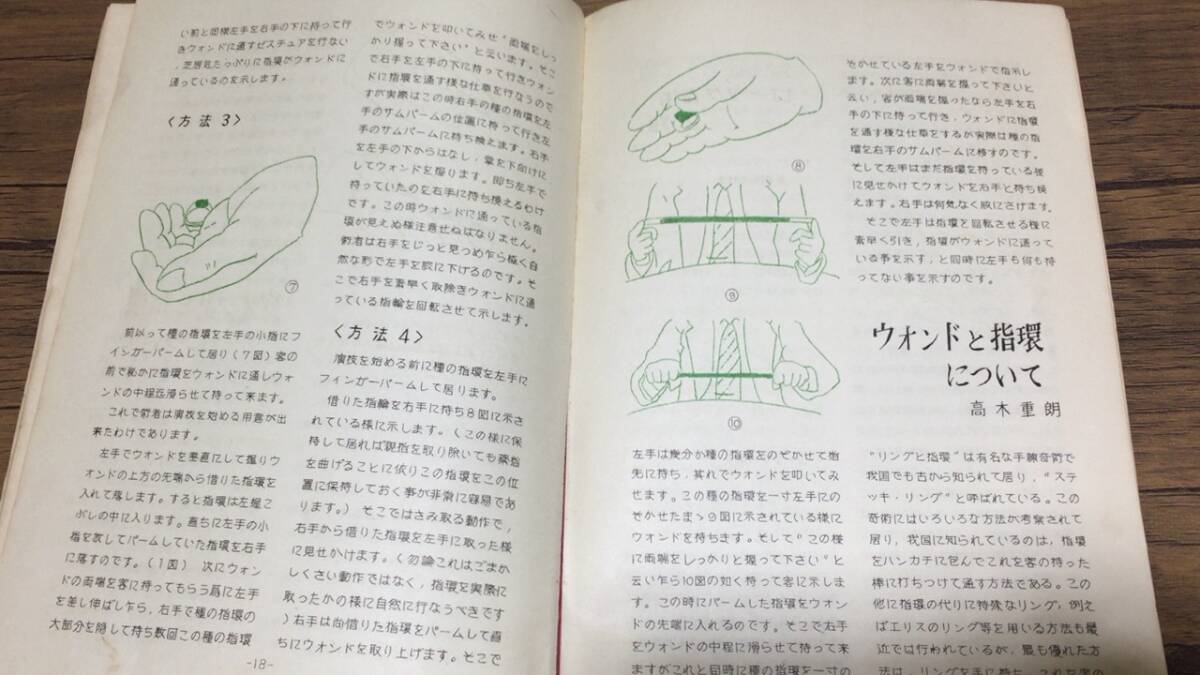 い前と同様左手を右手の下に持って行
きウォンドに通すゼスチュアを行ない
、芝居気たっぷりに指環がウォンドに
通っているのを示します。
〈方法3〉
⑦
前以って種の指環を左手の小指にフ
ィンガーパームして居り(7図)客の
前で秘かに指環をウォンドに通しウォ
ンドの中程迄滑らせて持って来ます。
これで術者は演技を始める用意が出
来たわけであります。
左手でウォンドを垂直にして握りウ
ォンドの上方の先端から借りた指環を
入れて落します。すると指環は左握こ
ぶしの中に入ります。直ちに左手の小
指を放してパームしていた指環を右手
に落すのです。(1図) 次にウォン
ドの両端を客に持ってもらう爲に左手
を差し伸ばし乍ら,右手で種の指環の
大部分を隠して持ち数回この種の指環
-18-
でウォンドを叩いてみせ“両端をしっ
かり握って下さい”と云います。そこ
で右手を左手の下に持って行きウォン
ドに指環を通す様な仕草を行なうので
すが実際はこの時右手の種の指環を左
手のサムパームの位置に持って行き左
手のサムパームに持ち換えます。右手
を左手の下からはなし,掌を下向けに
してウォンドを握ります。即ち左手で
持っていたのを右手に持ち換えるわけ
です。この時ウォンドに通っている指
環が見えぬ様注意せねばなりません。
術者は右手をじっと見つめ乍ら極く自
然な形で左手を膝に下げるのです。そ
こで右手を素早く取除きウォンドに通
っている指輪を回転させて示します。
〈方法4〉
演技を始める前に種の指環を左手に
フィンガーパームして居ります。
借りた指輪を右手に持ち8図に示さ
れている様に示します。(この様に保
持して居れば親指を取り除いても薬指
を曲げることに依りこの指環をこの位
置に保持しておく事が非常に容易であ
ります。) そこではさみ取る動作で,
右手から借りた指環を左手に取った様
に見せかけます。(勿論これはごまか
しくさい動作ではなく,指環を実際に
取ったかの様に自然に行なうべきです
)右手は尚借りた指環をパームして直
ちにウォンドを取り上げます。そこで
⑧
⑨
⑩
左手は幾分か種の指環をのぞかせて指
先に持ち,其れでウォンドを叩いてみ
せます。この種の指環を一寸左手にの
ぞかせたまゝ9図に示されている様に
ウォンドを持ちきす。そして“この様
に両端をしっかりと握って下さい”と
云い乍ら10図の如く持って客に示しま
す。この時にパームした指環をウォン
ドの先端に入れるのです。そこで右手
をウォンドの中程に滑らせて持って来
ますがこれと同時に種の指環を一寸の
ぞかせている左手をウォンドで指示し
ます。次に客に両端を握って下さいと
云い,客が両端を握ったなら左手を右
手の下に持って行き,ウォンドに指環
を通す様な仕草をするが実際は種の指
環を右手のサムパームに移すのです。
そして左手はまだ指環を持っている様
に見せかけてウォンドを右手と持ち換
えます。右手は何気なく膝にさげます。
そこで左手は指環を回転させる様に
素早く引き,指環がウォンドに通って
いる事を示す,と同時に左手も何も持
ってない事を示すのです。
ウオンドと指環
について
高木重朗
“リングと指環”は有名な手練奇術で
我国でも古から知られて居り,“ステ
ッキ・リング”と呼ばれている。この
奇術にはいろいろな方法が考案されて
居り,我国に知られているのは,指環
をハンカチに包んでこれを客の持った
棒に打ちつけて通す方法である。この
他に指環の代りに特殊なリング,例え
ばエリスのリング等を用いる方法も最
近では行われているが,最も優れた方